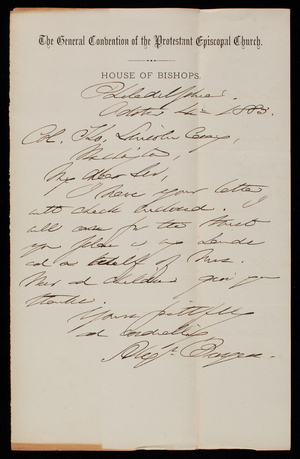 The General Convention of the Protestant Episcopal Church.
HOUSE OF BISHOPS.
Philadelphia.
October 4th 1883.
Col. Tho. Lincoln Casey,
Washington,
My dear Sir,
I have your letter
with check enclosed.
will care for the
you place in my hands
and on behalf of Mrs.
and children give you
thanks.
Yours faithfully
and cordially